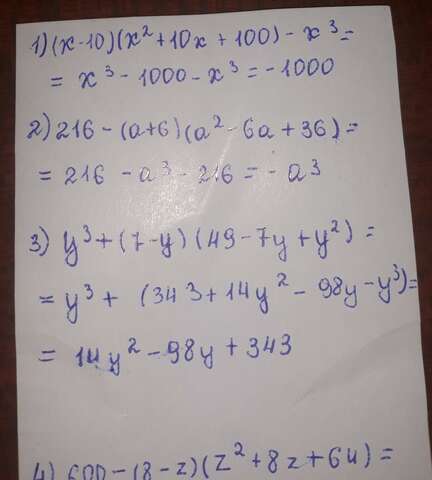 1) (x-10)(x²+10x+100) - x³ =
= x³ - 1000 - x³ = -1000
2) 216 - (a+6)(a² - 6a + 36) =
= 216 - a³ - 216 = - a³
3) y³ + (7-y)(49 - 7y + y²) =
= y³ + (343 + 14y² - 98y - y³) =
= 14y² - 98y + 343
4) 600 - (8 - z)(z² + 8z + 64) =